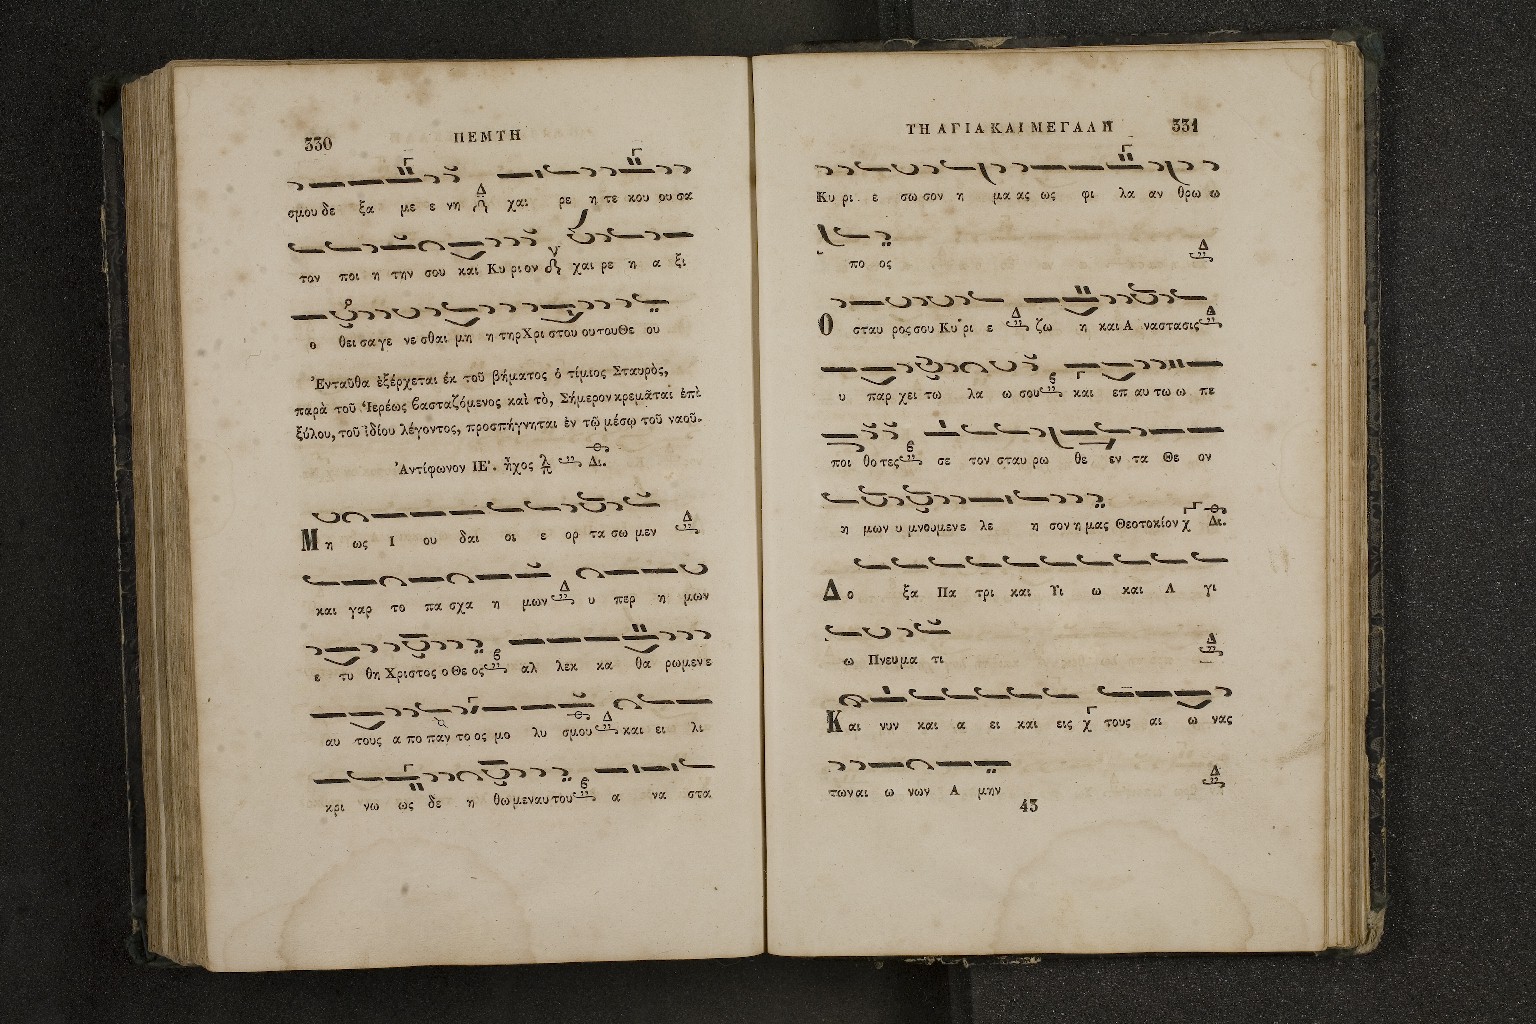 330 ΠΕΜΤΗ
σμου δε ξα με ε νη χαι ρε η τε κου ου σα
τον ποι η την σου και Κυ ρι ον χαι ρε η α ξι
ο θει σα γε νε σθαι μη η τηρ Χρι στου ου του Θε ου
Ἐνταῦθα ἐξέρχεται ἐκ τοῦ βήματος ὁ τίμιος Σταυρὸς,
παρὰ τοῦ Ἱερέως βασταζόμενος καὶ τὸ, Σήμερον κρεμᾶται ἐπὶ
ξύλου, τοῦ ἰδίου λέγοντος, προσπήγνηται ἐν τῷ μέσῳ τοῦ ναοῦ.
Ἀντίφωνον ΙΕ'. ἦχος λ π Δι.
Μη ως Ι ου δαι οι ε ορ τα σω μεν Δ
και γαρ το πα σχα η μων Δ υ περ η μων
ε τυ θη Χριστος ο Θε ος αλ λεκ κα θα ρωμεν ε
αυ τους α πο παν το ος μο λυ σμου Δ και ει λι
κρι νω ως δε η θωμεναυτου α να στα
ΤΗ ΑΓΙΑ ΚΑΙ ΜΕΓΑΛΗ 331
Κυ ρι ε σω σον η μα ας ως φι λα αν θρω ω
πο ος Δ
Ο σταυ ρος σου Κυ ρι ε Δ ζω η και Α ναστασις Δ
υ παρ χει τω λα ω σου και επ αυ τω ω πε
ποι θο τες σε τον σταυ ρω θε εν τα Θε ον
η μων υ μνουμεν ε λε η σον η μας Θεοτοκίον χ Δι.
Δο ξα Πα τρι και Υι ω και Α γι
ω Πνευμα τι Δ
Και νυν και α ει και εις χ τους αι ω νας
των αι ω νων Α μην Δ
43